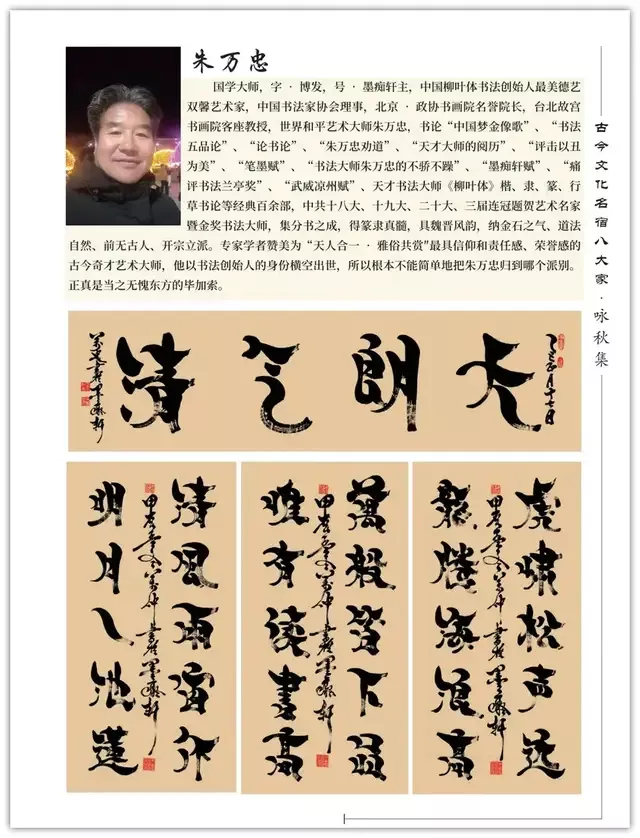 朱万忠
国学大师，字·博发，号·墨痴轩主，中国柳叶体书法创始人最美德艺
双馨艺术家，中国书法家协会理事，北京·政协书画院名誉院长，台北故宫
书画院客座教授，世界和平艺术大师朱万忠，书论“中国梦金像歌”、“书法
五品论”、“论书论”、“朱万忠劝道”、“天才大师的阅历”、“评击以丑
为美”、“笔墨赋”、“书法大师朱万忠的不骄不躁”、“墨痴轩赋”、“痛
评书法兰亭奖”、“武威凉州赋”、天才书法大师《柳叶体》楷、隶、篆、行
草书论等经典百余部，中共十八大、十九大、二十大、三届连冠题贺艺术名家
暨金奖书法大师，集分书之成，得篆隶真髓，具魏晋风韵，纳金石之气、道法
自然、前无古人、开宗立派。专家学者赞美为“天人合一·雅俗共赏”最具信仰和责任感、荣誉感的
古今奇才艺术大师，他以书法创始人的身份横空出世，所以根本不能简单地把朱万忠归到哪个派别。
正真是当之无愧东方的毕加索。
古今文化名宿八大家·咏秋集
乙巳正月十七日
天朗气清
虎啸松声远
龍腾海浪高
萬般皆下品
惟有读書高
清風雨窗竹
明月一池蓮